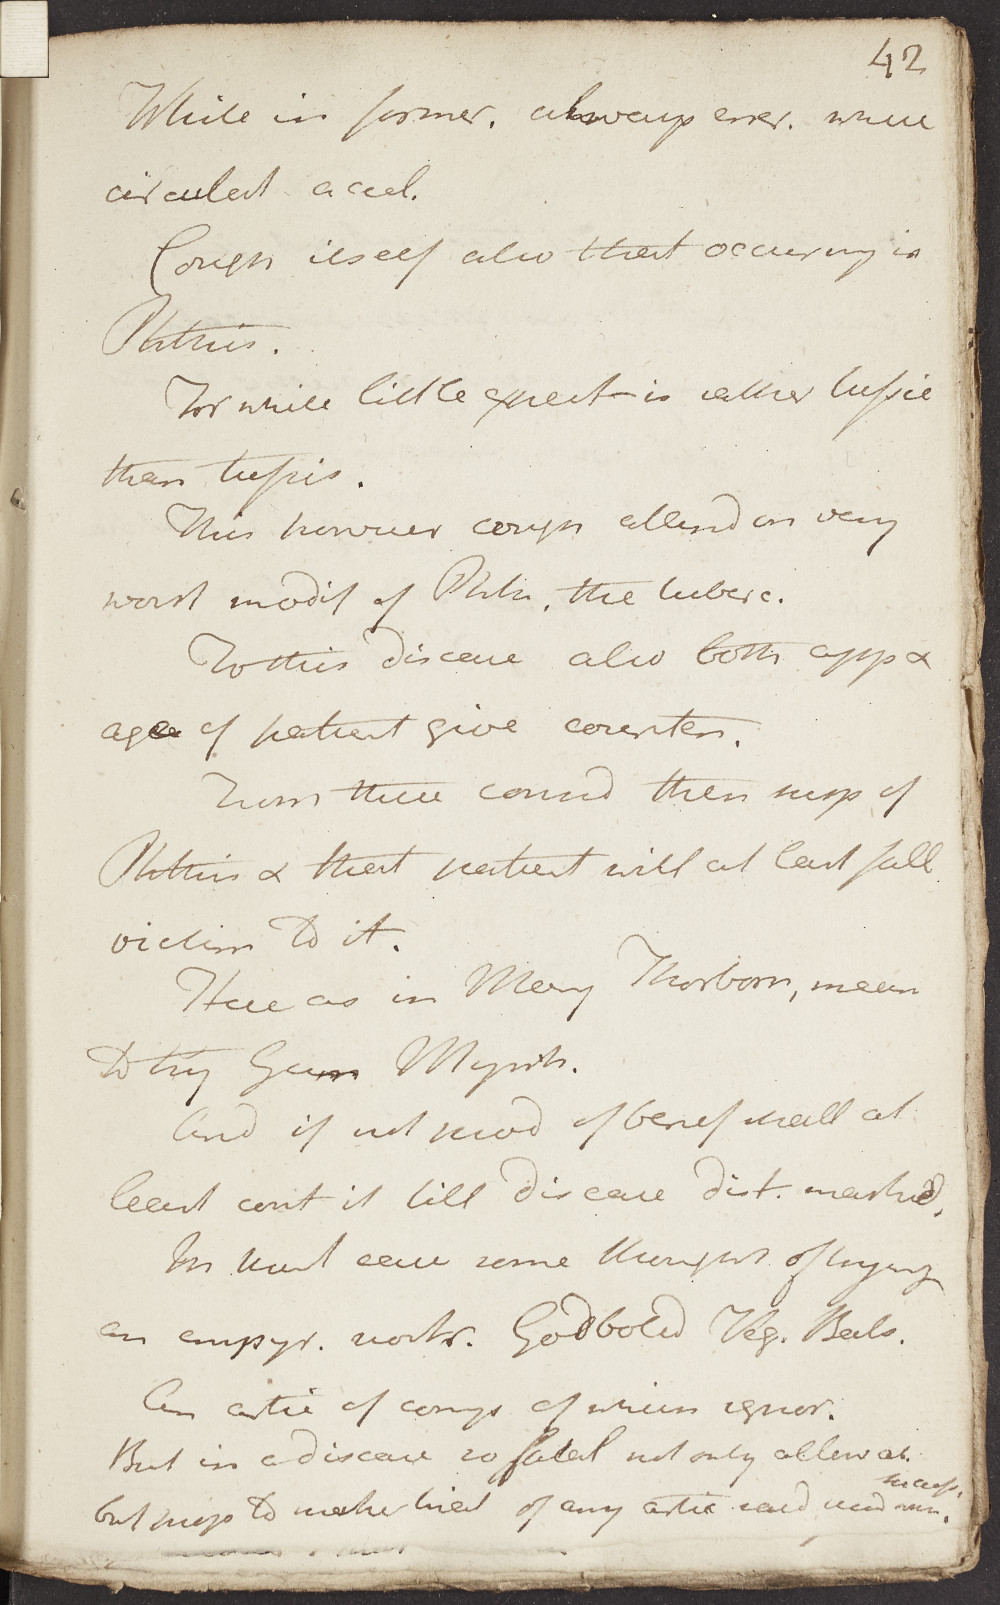 42
While in former. always exer. while
circulat accel.
Cough itself also that occuring in
Phthisis.
For while little expect is rather tussic
than tussis.
This however cough attend on very
worst modif of Phth, the tuberc.
To this disease also both app &
age of patient give counten.
From these consid then susp of
Phthisis & that patient will at last fall
victim to it.
Here as in Mary Thorborn, mean
to try Gum Myrrh.
And if not prod of benef shall at
least cont it till disease dist. marked.
In that case some thought of trying
an empyr. nostr. Godbold Veg. Bals.
An artic of comps of which ignor.
But in a disease so fatal not only allowab.
but prop to make trial of any artic said success.